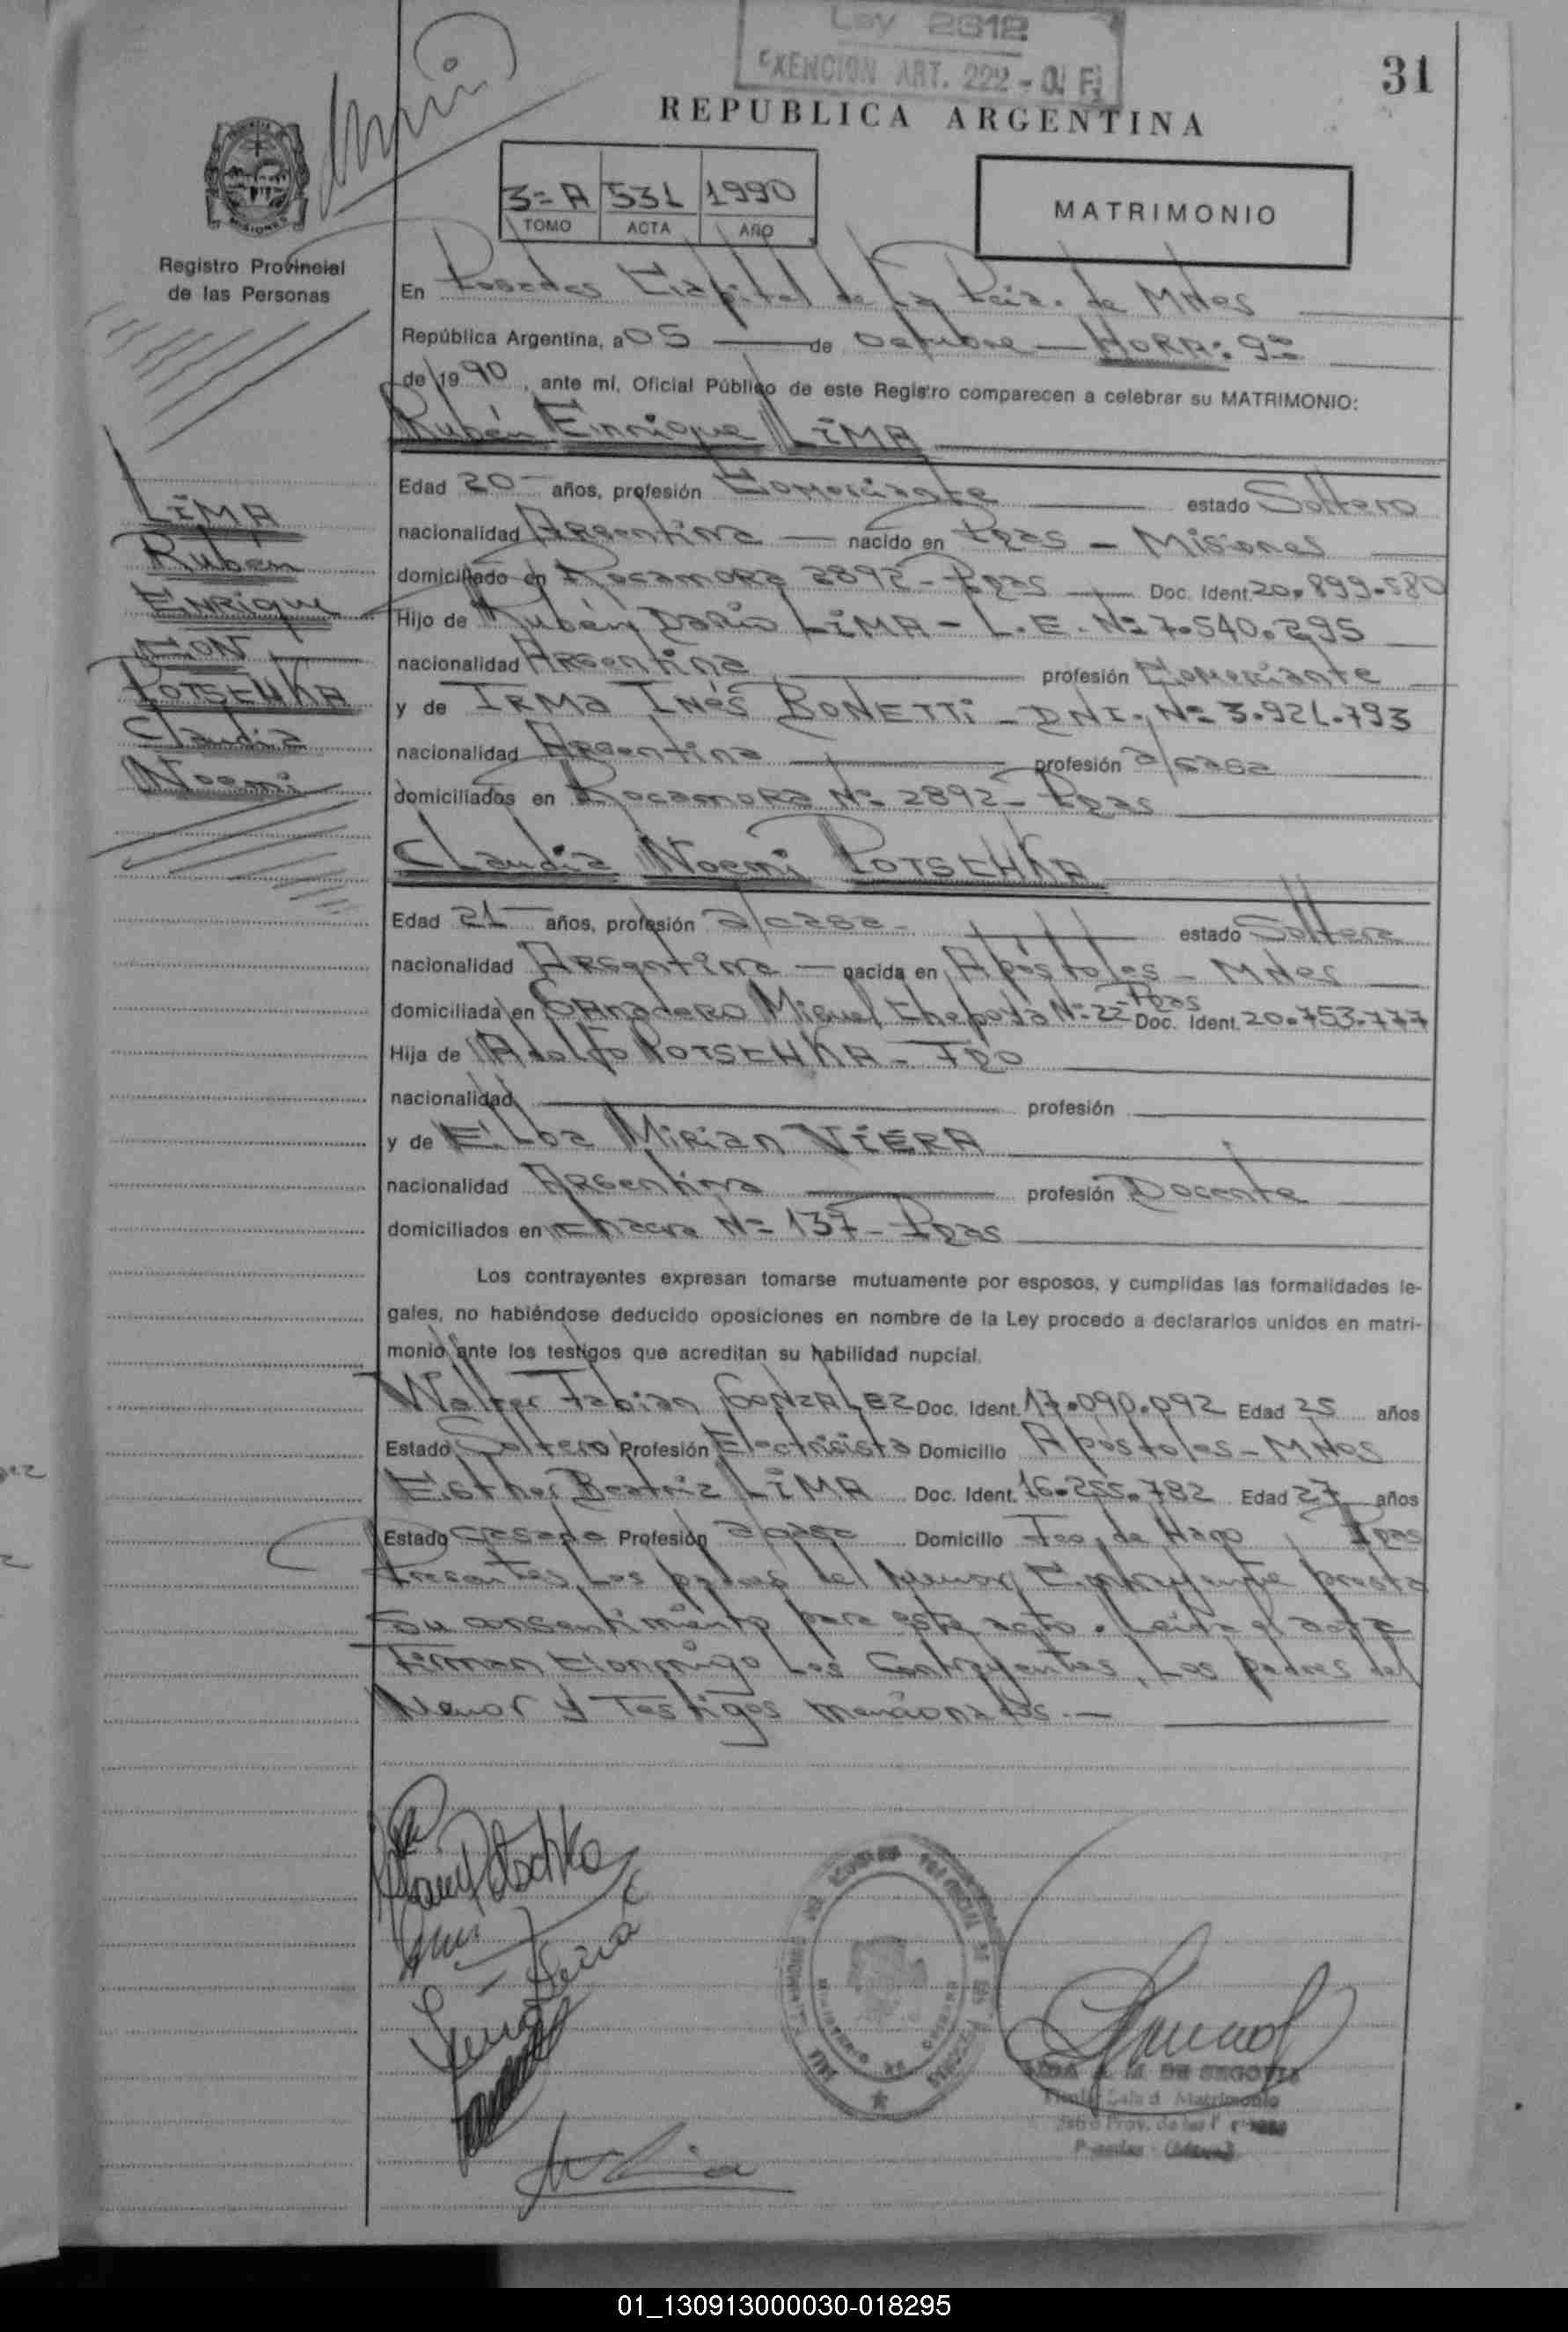 Ley 2612
EXENCION ART. 222 - C. F.
31
REPUBLICA ARGENTINA
3= A 531 1990
TOMO ACTA AÑO
MATRIMONIO
MISIONES
Registro Provincial
de las Personas
En Posadas Capital de la Pcia. de Mnes
República Argentina, a 05 de octubre - HORA: 9
de 1990, ante mí, Oficial Público de este Registro comparecen a celebrar su MATRIMONIO:
Rubén Enrique LIMA
Edad 20 años, profesión Comerciante estado Soltero
nacionalidad Argentina nacido en Pdas - Misiones
domiciliado en Rocamora 2892 - Pdas Doc. Ident. 20.899.580
Hijo de Rubén Darío LIMA - L.E. Nº 7.540.295
nacionalidad Argentina profesión Comerciante
y de IRMA INÉS BONETTI - DNI. Nº 3.921.793
nacionalidad Argentina profesión a/casa
domiciliados en Rocamora Nº 2892 - Pdas
LIMA
Rubén
ENRIQUE
CON
POTSCHKA
Claudia
Noemi
Claudia Noemi POTSCHKA
Edad 21 años, profesión a/casa - estado Soltera
nacionalidad Argentina nacida en Apóstoles - Mnes
domiciliada en Granadero Miguel Chepoyá Nº 22 Pdas Doc. Ident. 20.753.777
Hija de Adolfo POTSCHKA - Fdo
nacionalidad profesión
y de Eloa Mirian VIERA
nacionalidad Argentina profesión Docente
domiciliados en chacra Nº 137 - Pdas
Los contrayentes expresan tomarse mutuamente por esposos, y cumplidas las formalidades le-
gales, no habiéndose deducido oposiciones en nombre de la Ley procedo a declararlos unidos en matri-
monio ante los testigos que acreditan su habilidad nupcial.
Walter Fabian GONZALEZ Doc. Ident. 17.090.092 Edad 25 años
Estado Soltero Profesión Electricista Domicilio Apostoles - Mnes
Esther Beatriz LIMA Doc. Ident. 16.255.782 Edad 27 años
Estado casada Profesión a/casa Domicilio Fco. de Haro Pdas
Presentes los padres del menor Contrayente presta
su consentimiento para este acto. Leída el acta
firman Conmigo Los Contrayentes, Los padres del
Menor y Testigos mencionados.-
Potschka
DE SEGOVIA
Titular Sala d Matrimonio
01_130913000030-018295